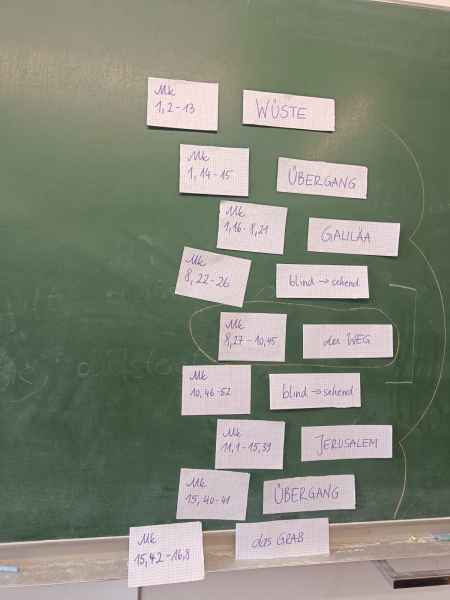 Mk
1, 2-13
WÜSTE
Mk
1, 14-15
ÜBERGANG
Mk
1,16-8,21
GALILÄA
Mk
8, 22-26
blind → sehend
Mk
8,27-10,45
der WEG
Mk
10,46-52
blind → sehend
Mk
11,1-15,39
JERUSALEM
Mk
15, 40-41
ÜBERGANG
Mk
15,42-16,8
das GRAB